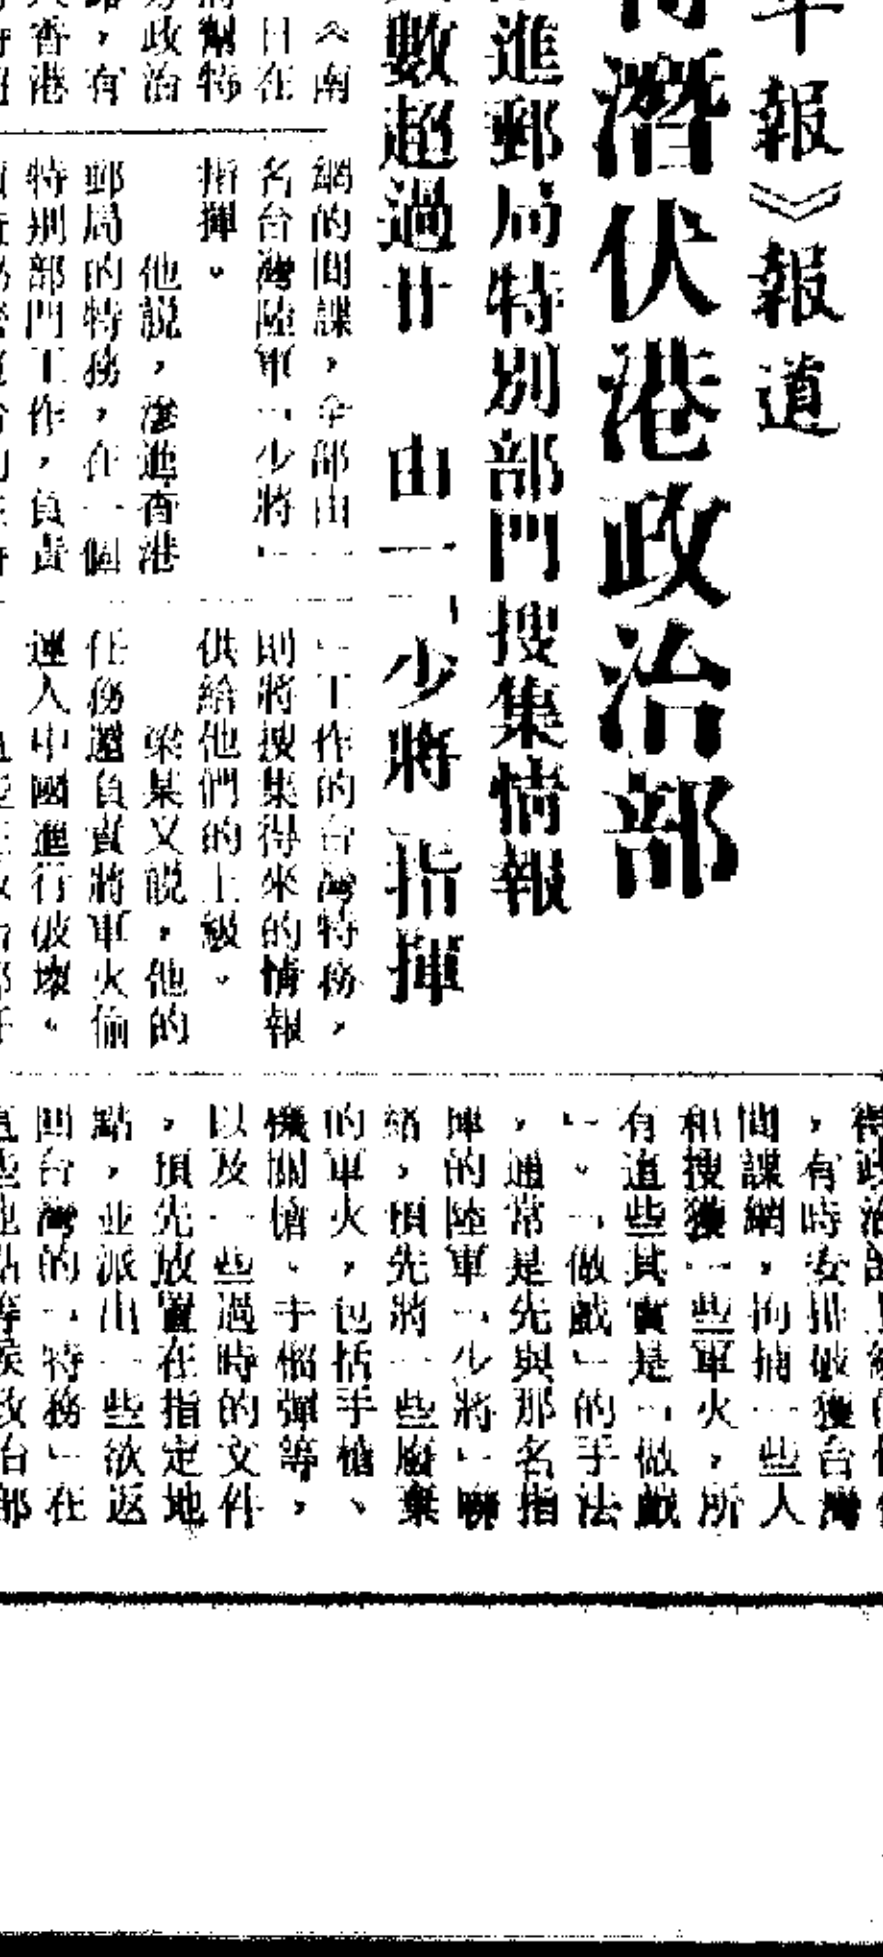 報》報道
潛伏港政治部
進郵局特別部門搜集情報
數超過廿 由一「少將 指揮
《南
日在
政治
，有
香港
網的間諜，全部由一
名台灣陸軍「少將」
指揮。
他説，滲進香港
郵局的特務，在一個
特別部門工作，負責
」工作的台灣特務，
則將搜集得來的情報
供給他們的上級。
梁某又説，他的
任務還負責將軍火偷
運入中國進行破壞。
，有時安排破獲台灣
間諜網，拘捕一些人
和搜獲一些軍火，所
有這些其實是「做戲
」。「做戲」的手法
，通常是先與那名指
揮的陸軍「少將」聯
絡，預先將一些廢棄
的軍火，包括手槍、
機關槍、手榴彈等，
以及一些過時的文件
，預先放置在指定地
點，並派出一些欲返
回台灣的「特務」在